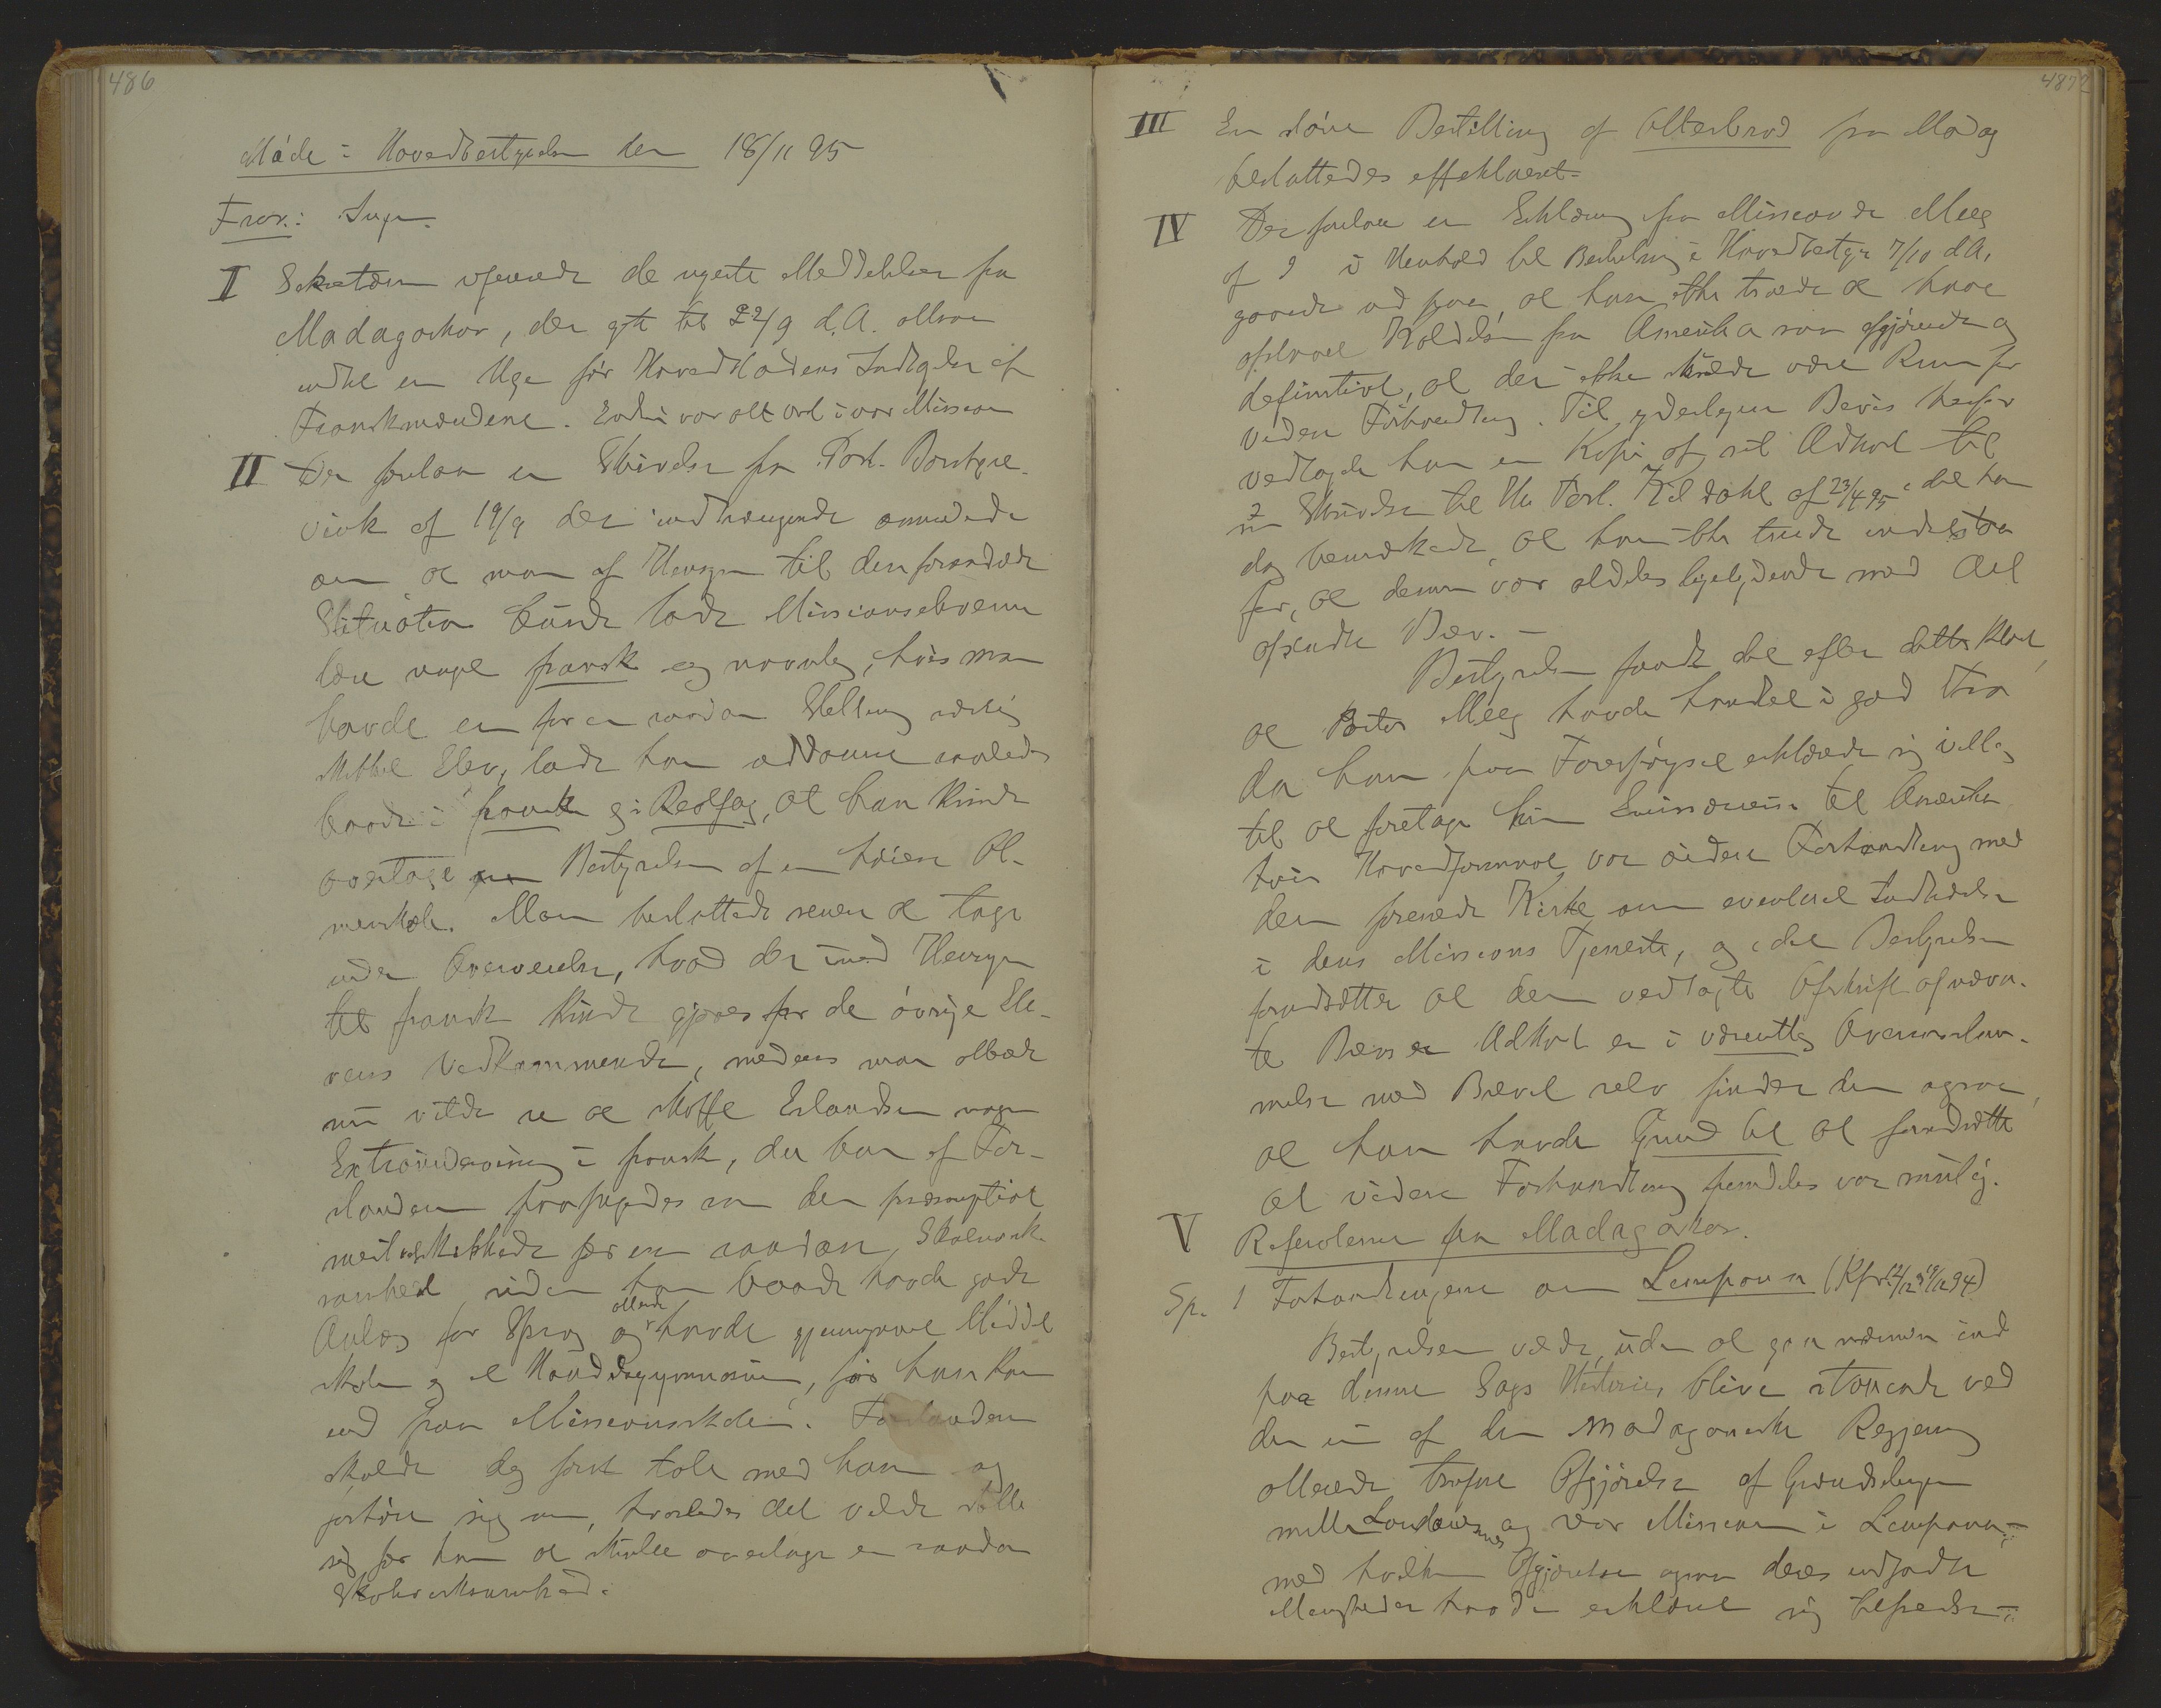 486
Møde i Hovedbestyrelsen den 18/11 95
Frav.: Ingen
I Sekretæren refererede de nyeste Meddelelser fra
Madagaskar, der gik til 22/9 d.A. altsaa
indtil en Uge før Hovedstadens Indtagelse af
Franskmændene. Endnu var alt vel i vor Mission
II Der forelaa en Skrivelse fra Past. Borchgre-
vink af 19/9 der indtrængende anmodede
om at man af Hensyn til den forandrede
Situation burde lade Missionseleverne
lære noget fransk og navnlig, hvis man
havde en for en saadan Stilling særlig
skikket Elev, lade ham uddanne saaledes
baade i fransk og i Realfag, at han kunde
overtage Bestyrelsen af en høiere Al-
menskole. Man besluttede senere at tage
under Overveielse, hvad der med Hensyn
til fransk kunde gjøres for de øvrige Ele-
vers Vedkommende, medens man allerede
nu vilde se at skaffe Erlandsen nogen
Extraundervisning i fransk, der han af For-
standeren som den præsumptivt
mest skikkede for en saadan Skolevirk-
somhed, siden han baade havde gode
Anlæg for Sprog og allerede havde gjennemgaaet Middel
skolen og et Handelsgymnasium, før han kom
ind paa Missionsskolen. Forstanderen
skulde dog først tale med ham og
forhøre sig om, hvorledes det vilde stille
sig for ham at skulle overtage en saadan
Skolevirksomhed.
487
III En større Bestilling af Alterbrød fra Madag
besluttedes effektueret.
IV Der forelaa en Erklæring fra Missionær Meeg
af 9 i Henhold til Beslutning i Hovedbestyr 7/10 d.A.
gaaende ud paa, at han ikke troede at have
opfattet fra Amerika som afgjørende og
definitivt, at der ikke skulde være Rum for
videre Forhandling. Til yderligere Bevis herfor
vedlagde han en Kopi af sit Udkast til
sin Skrivelse til Hr Past. Kildahl af 23/4 95 idet han
dog bemærkede, at han ikke turde indestaa
for, at denne var aldeles ligelydende med det
afsendte Brev. –
Bestyrelsen fandt det efter dette klart,
at Pastor Meeg havde handlet i god Tro
da han paa Forespørgsel erklærede sig villig
til at foretage hin Emissærreise til Amerika
hvis Hovedformaal var videre Forhandling med
den forenede Kirke om eventuel Indtrædelse
i dens Missions Tjeneste, og idet Bestyrelsen
forudsætter at den vedlagte Afskrift af nævn-
te Brevs Udkast er i væsentlig Overensstem-
melse med Brevet selv finder den ogsaa,
at han havde Grund til at forudsætte
at videre Forhandling fremdeles var mulig.
V Referaterne fra Madagaskar.
Sp. 1 Forhandlingerne om Lempona (Kfr 19/12 94)
Bestyrelsen vilde, uden at gaa nærmere ind
paa denne Sags Historie, blive staaende ved
den nu af den Madagassiske Regjering
allerede trufne Afgjørelse af Grændselinjen
mellem Londonernes og vor Mission i Lempona,
med hvilken Afgjørelse ogsaa deres indfødte
Menigheder havde erklæret sig tilfredse